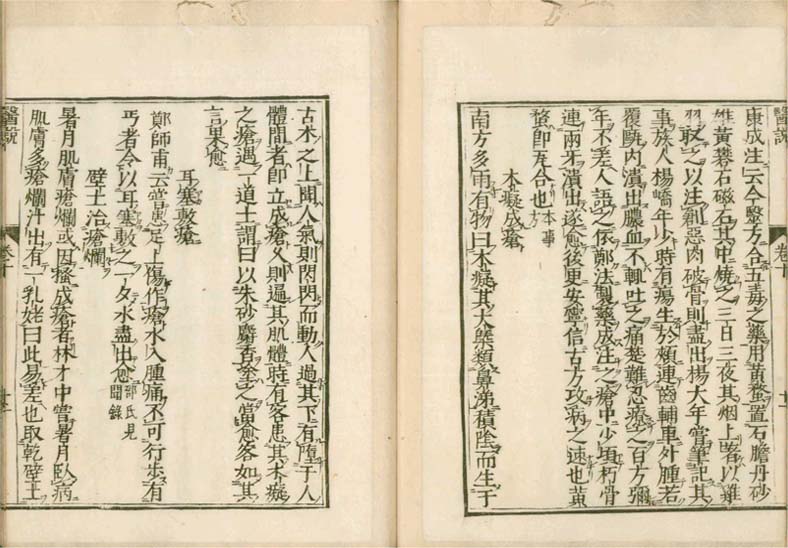 醫說
卷十
康成注云今醫方合五毒之藥用黃蝥置石膽丹砂
雄黃礜石磁石其中燒之三日三夜其烟上著以雞
羽取之以注創惡肉破骨則盡出楊大年嘗筆記其
事族人楊嶠年少時有瘍生於頰連齒輔車外腫若
覆甌内潰出膿血不輒吐之痛楚難忍療之百方彌
年不差人語之依鄭法製藥成注之瘡中少頃朽骨
連兩牙潰出遂愈後更安寧信古方攻病之速也黃
蝥即瓦合也 本事
木癡成瘡
南方多雨有物曰木癡其大槩類鼻涕積陰而生于
古木之上聞人氣則閃閃而動人過其下有堕于人
體間者即立成瘡久則遍其肌體時有客患其木癡
之瘡遇一道士謂曰以朱砂麝香塗之當愈客如其
言果愈
耳塞敷瘡
鄭師甫云嘗患足上傷作瘡水入腫痛不可行步有
丐者令以耳塞敷之一夕水盡出愈 邵氏見聞錄
壁土治瘡爛
暑月肌膚瘡爛或因搔成瘡者林才中嘗暑月卧病
肌膚多瘡爛汁出有一乳姥曰此易差也取乾壁土
醫說
卷十